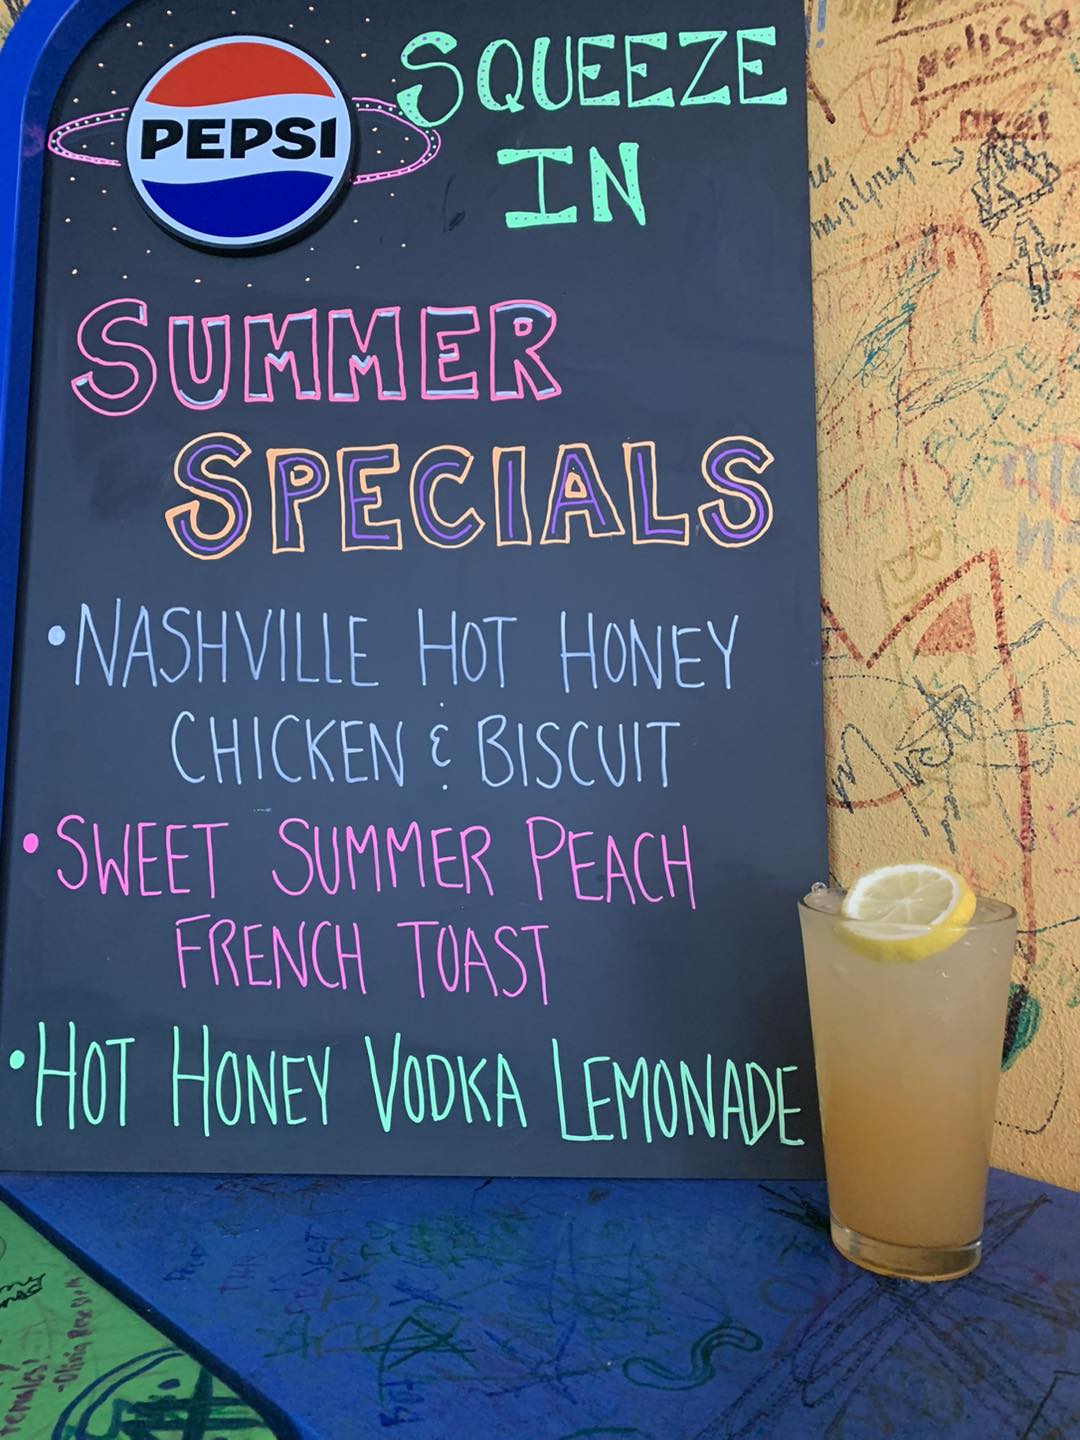 PEPSI
SQUEEZE
IN
SUMMER
SPECIALS
•NASHVILLE HOT HONEY
CHICKEN & BISCUIT
•SWEET SUMMER PEACH
FRENCH TOAST
•HOT HONEY VODKA LEMONADE
melissa